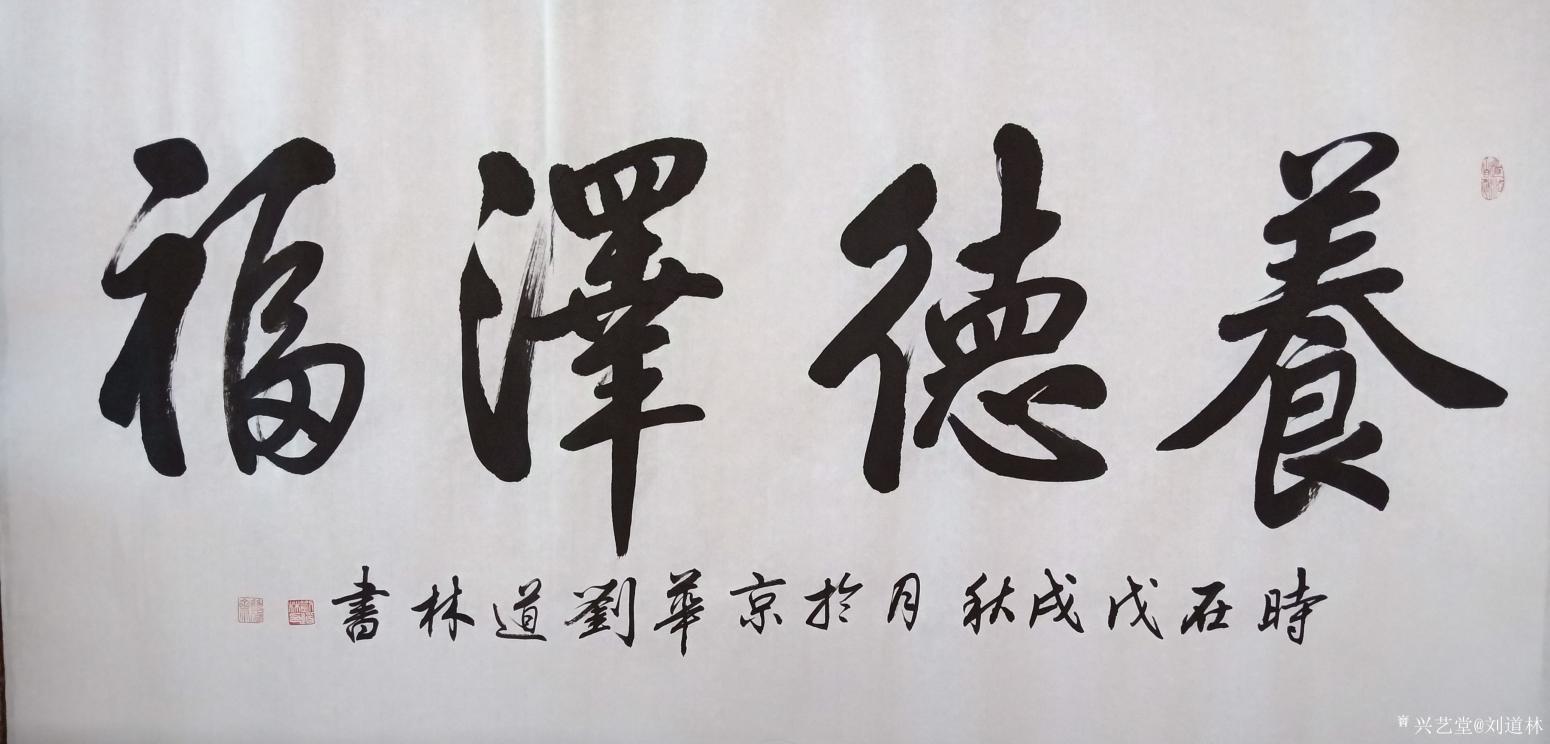 養德澤福
時在戊戌秋月於京華劉道林書
兴艺堂@刘道林